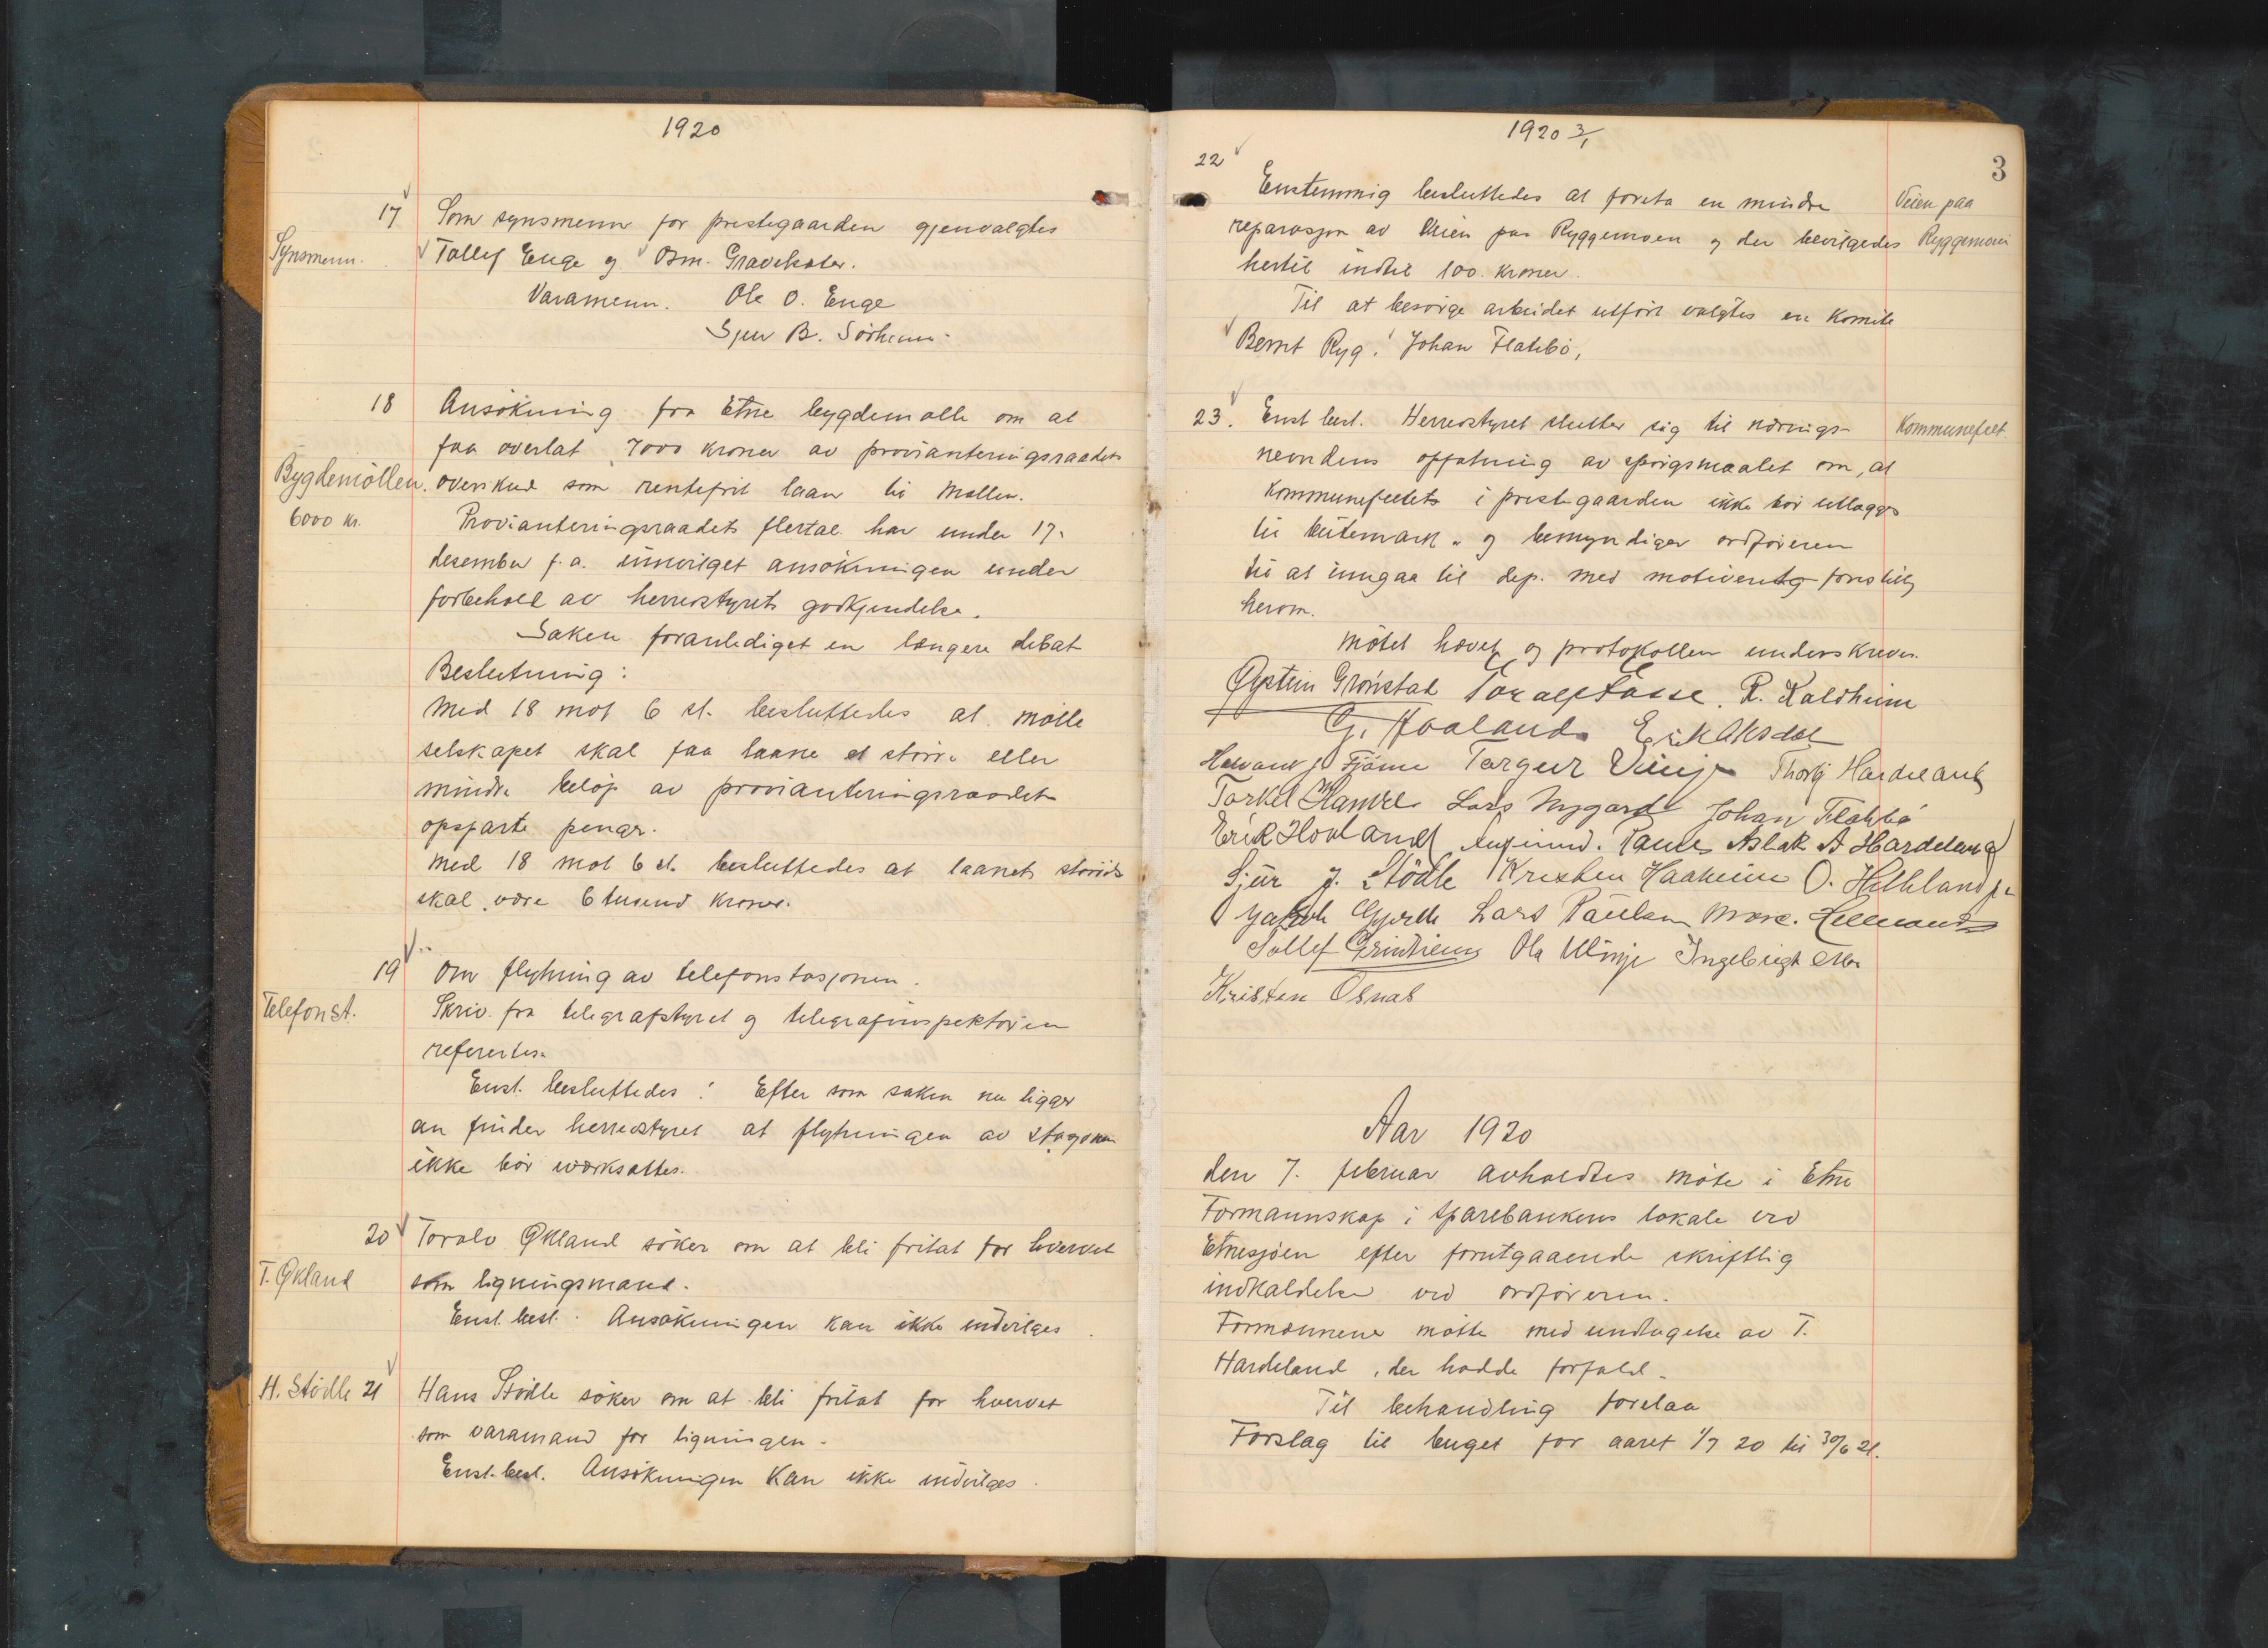 1920
17 Som synsmenn for prestegaarden gjenvalgtes
Synsmenn. Tollef Enge og Osm. Gravelsæter.
Varamenn. Ole O. Enge
Sjur B. Sørheim.
18 Ansökning fra Etne bygdemölle om at
faa overlat 7000 kroner av provianteringsraadets
Bygdemöllen. overskud som rentefrit laan til Möllen.
6000 kr. Provianteringsraadets flertal har under 17.
desember f.a. innvilget ansökningen under
forbehold av herredstyrets godkjendelse.
Saken foranlediget en længere debat
Beslutning:
Med 18 mot 6 st. besluttedes at mölle
selskapet skal faa laane et större eller
mindre belöp av provianteringsraadets
opsparte penger.
Med 18 mot 6 st. besluttedes at laanets störrelse
skal være 6 tusend kroner.
19 Om flytning av telefonstasjonen.
Telefonst. Skriv. fra telegrafstyret og telegrafinspektören
refereertes.
Enst. besluttedes: Efter som saken nu ligger
an finder herredstyret at flytningen av stasjonen
ikke bör iværksættes.
20 Toralv Økland söker om at bli fritat for hvervet
T. Økland som ligningsmand.
Enst. besl. Ansökningen kan ikke indvilges.
H. Stödle 21 Hans Stödle söker om at bli fritat for hvervet
som varamand for ligningen.
Enst. besl. Ansökningen kan ikke indvilges.
1920 3/1
3
22 Enstemmig besluttedes at foreta en mindre Veien paa
reparasjon av Veien paa Ryggemoen og der bevilgedes Ryggemoen
hertil indtil 100 kroner.
Til at besörge arbeidet utfört valgtes en komite
Bernt Ryg, Johan Flatebö,
23. Enst besl. Herredstyret slutter sig til nærings- Kommunefeet
nevndens opfatning av spörgsmaalet om, at
Kommunefeets i prestegaarden ikke bör utlægges
til beitemark og bemyndiger ordföreren
til at inngaa til dep. med motivert forestilling
herom.
Mötet hævet og protokollen underskreves.
Øystein Grönstad Toralf Fosse. R. Kaldheim
G. Haaland Erik Aksdal
Halvard J Fjösne Torgeir Vinje Thorbj Hardeland
Torkel Hamre Lars Nygard Johan Flatebö
Erik Hovland Aslak A Hardeland
Sjur J. Stödle Kristen Haaheim O. Helleland jr
Jakob Gjerde Lars Paulsen
Tollef Grindheim Ola Vinje Ingebrigt
Kristen Ösnes
Aar 1920
den 7. februar avholdtes möte i Etne
Formannskap i sparebankens lokale ved
Etnesjöen efter forutgaaende skriftlig
indkaldelse ved ordföreren.
Formænnene mötte med undtagelse av T.
Hardeland, der hadde forfald.
Til behandling forelaa
Forslag til buget for aaret 1/7 20 til 30/6 21.